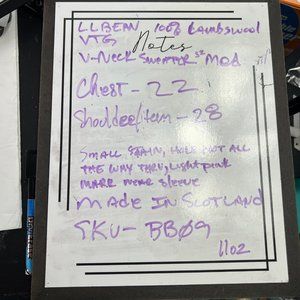 LLBEAN 100% Lambswool
VTG
Notes
V-Neck Sweater sz Med
Chest - 22
Shoulder/Hem - 28
Small Stain, Hole not all
the way thru, Light pink
mark near sleeve
Made in Scotland
SKU - BB09
11oz